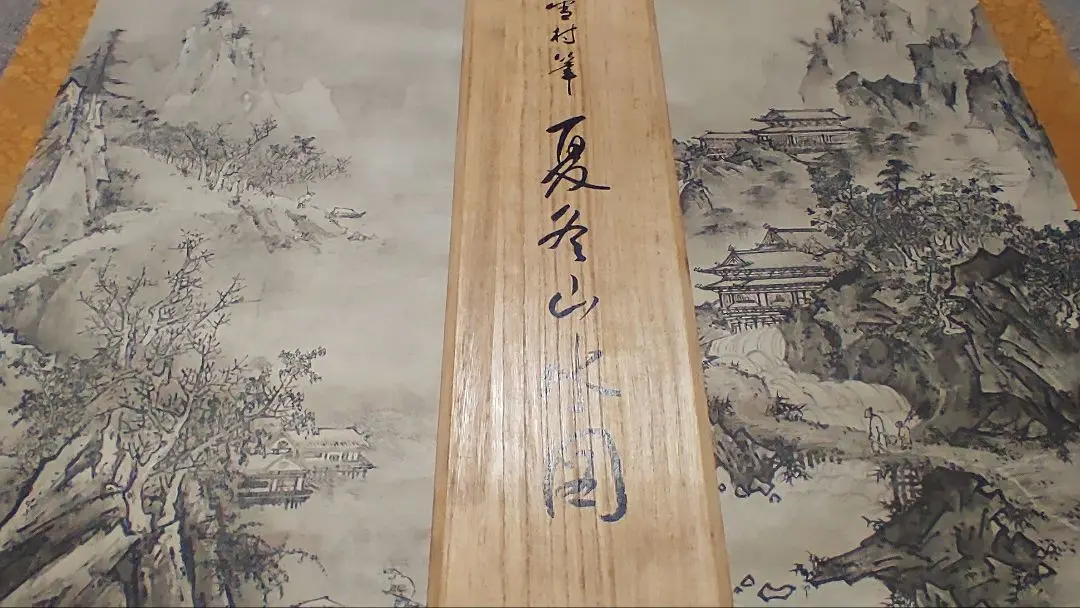 雪村筆 夏冬山水図